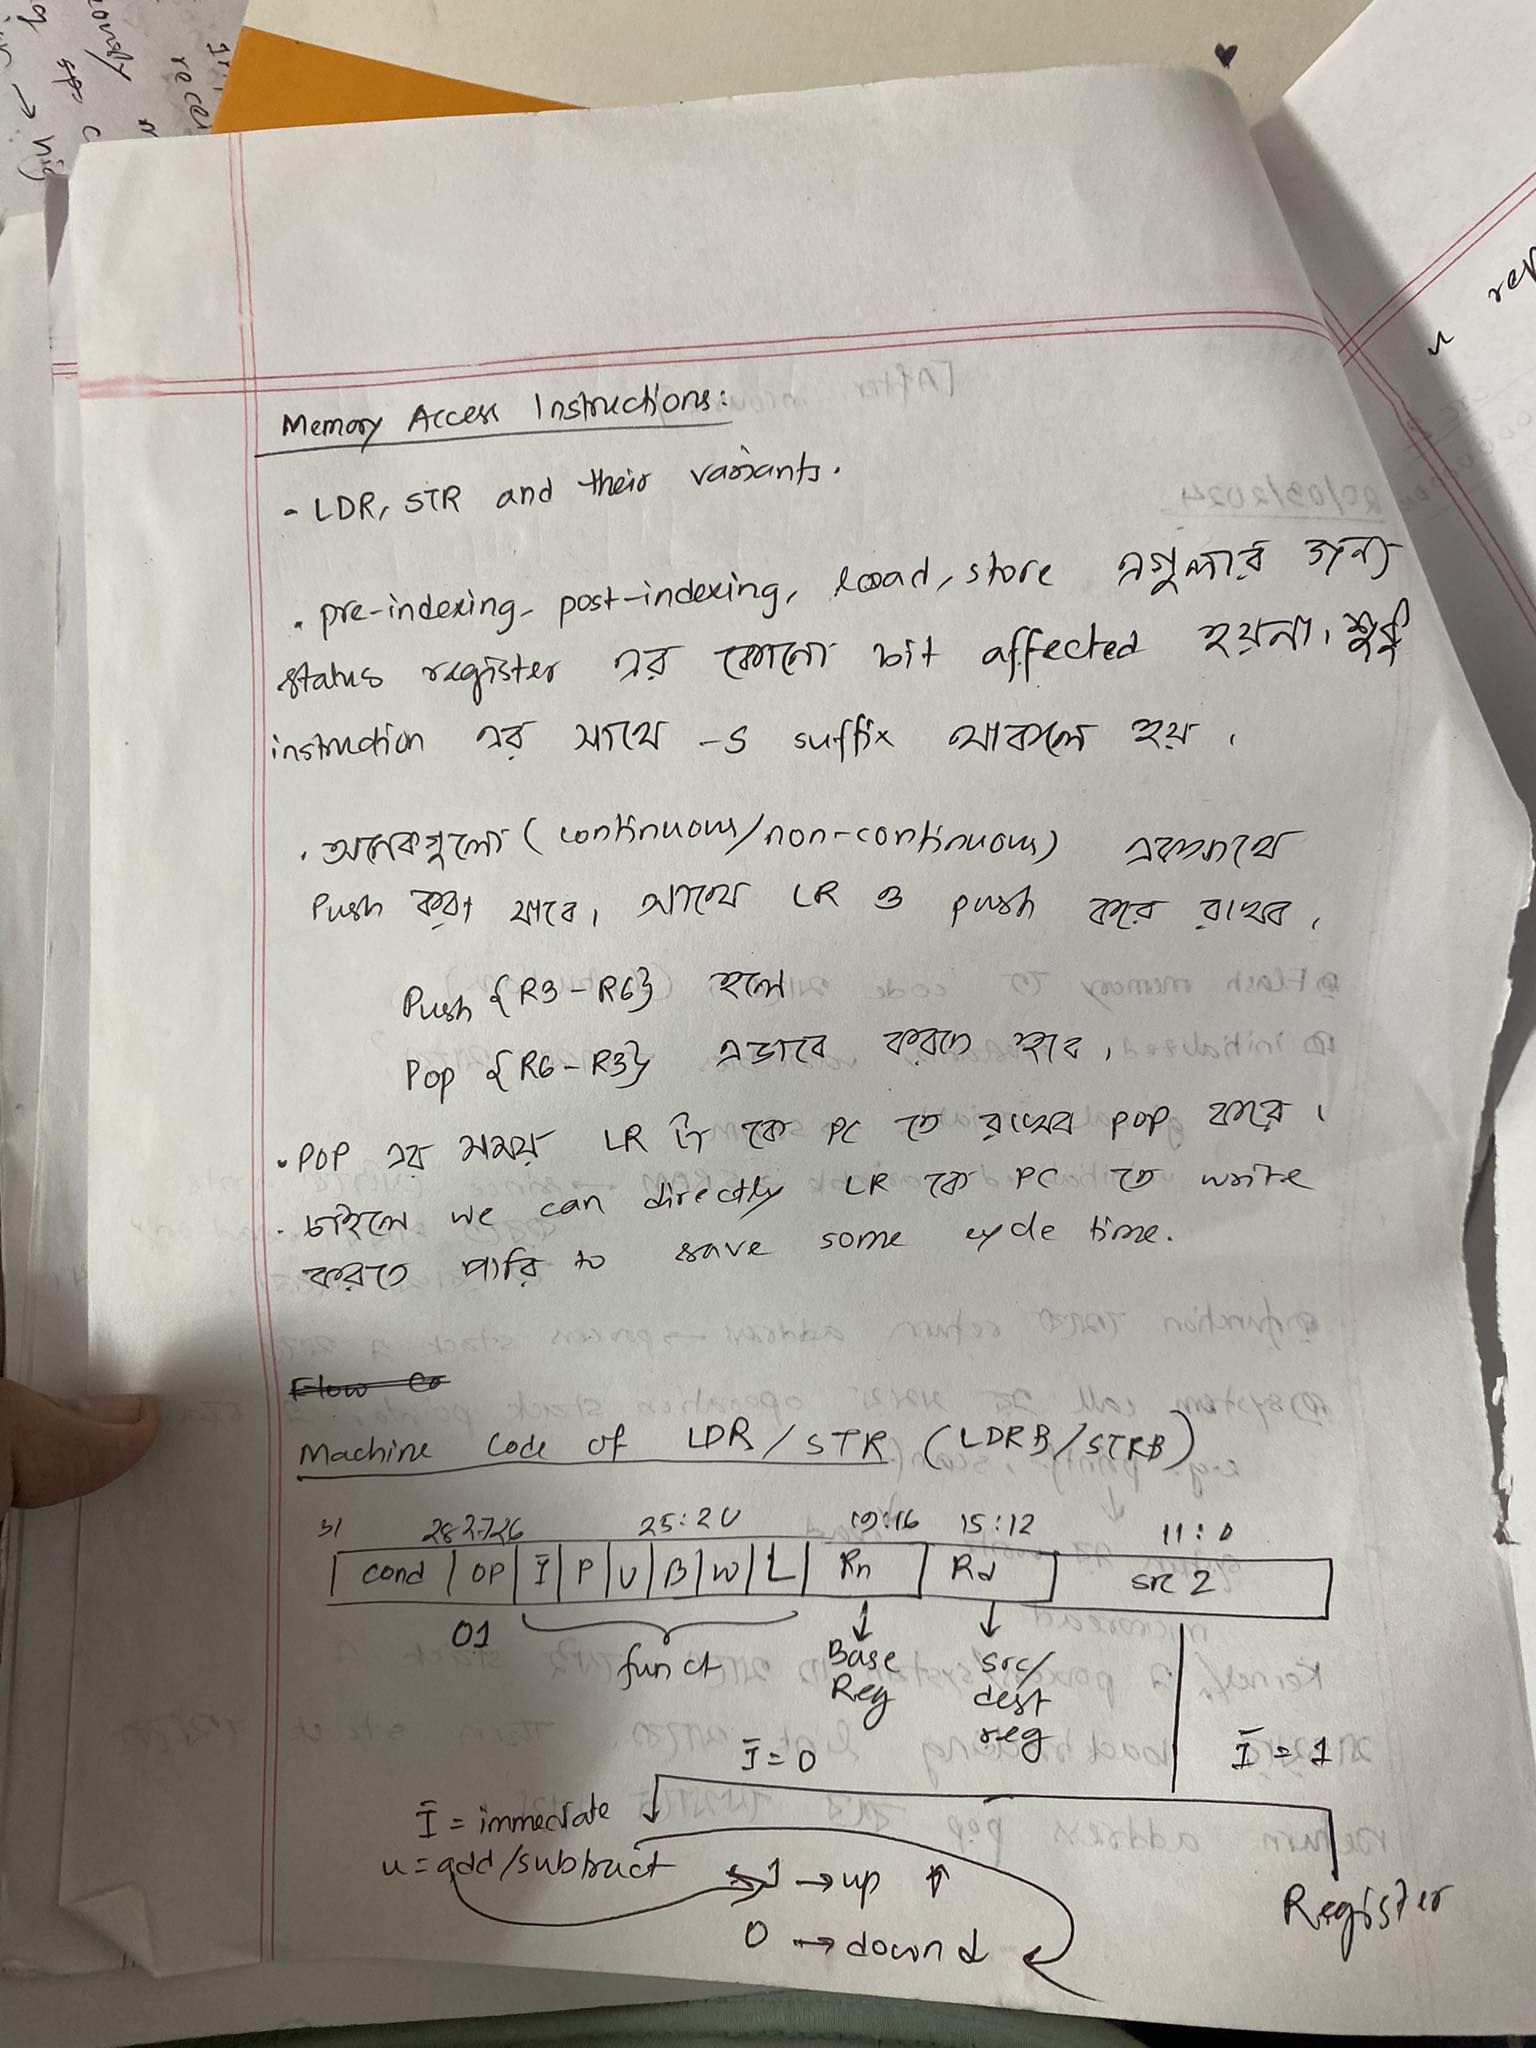 Memory Access Instructions:
- LDR, STR and their variants.
. pre-indexing, post-indexing, load, store এগুলার জন্য
status register এর কোনো bit affected হয়না। শুধু
instruction এর সাথে -S suffix থাকলে হয়।
. অনেকগুলো (continuous/non-continuous) একসাথে
Push করা যাবে। সাথে LR ও push করে রাখব।
Push {R3-R6} হলে
Pop {R6-R3} এভাবে করতে হবে।
. POP এর সময় LR টা কে PC তে রাখব POP করে।
. চাইলে we can directly LR কে PC তে write
করতে পারি to save some cycle time.
Machine Code of LDR/STR (LDRB/STRB)
31 28 27 26 25:20 19:16 15:12 11:0
cond OP Ī P U B W L Rn Rd src 2
01 funct
Base Reg
src/dest reg
Ī = 0 Ī = 1
Ī = immediate
u = add/subtract 1 → up ↑
0 → down ↓
Register